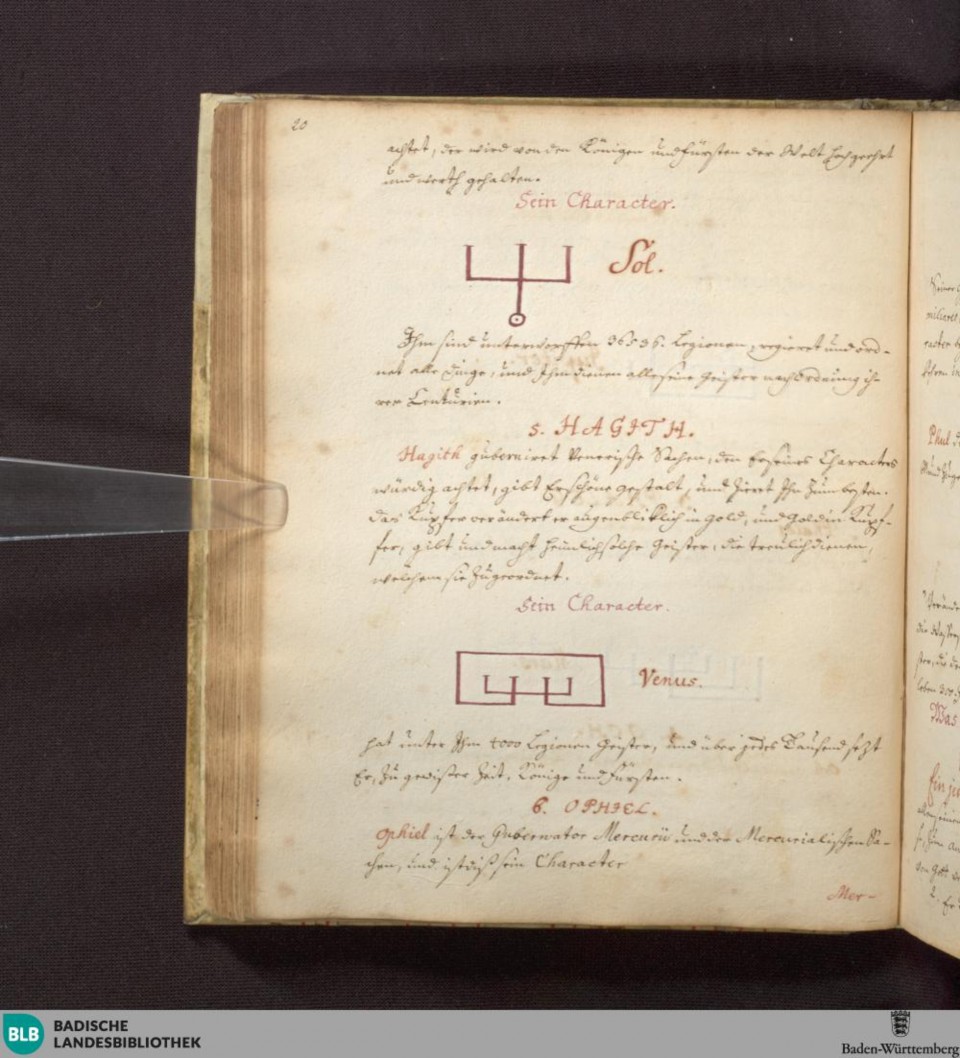 20
achtet, der wird von den Königen und Fürsten der Welt hochgeehrt
und werth gehalten.
Sein Character.
Sol.
Ihm sind unterworffen 36536. Legionen, regieret und ord-
net alle Dinge, und Ihm dienen alle seine Geister nach Ordnung ih-
rer Centurien.
5. HAGITH.
Hagith guberniret Venerische Sachen, den Er seines Characters
würdig achtet, gibt Er schöne gestalt, und zieret Ihn zum besten.
das Kupfer verändert er augenbliklich in Gold, und Gold in Kupf-
fer, gibt und macht solche Geister, die treulich dienen,
welchem sie zugeordnet.
Sein Character.
Venus.
hat unter Ihm 4000 Legionen Geister, und über jedes Tausend sezt
Er, zu gewisser Zeit, Könige und Fürsten.
6. OPHIEL.
Ophiel ist der Gubernator Mercurii und der Mercurialischen Sa-
chen, und ist diß sein Character
Mer-
Phul
Was
Ein
BLB
BADISCHE
LANDESBIBLIOTHEK
Baden-Württemberg